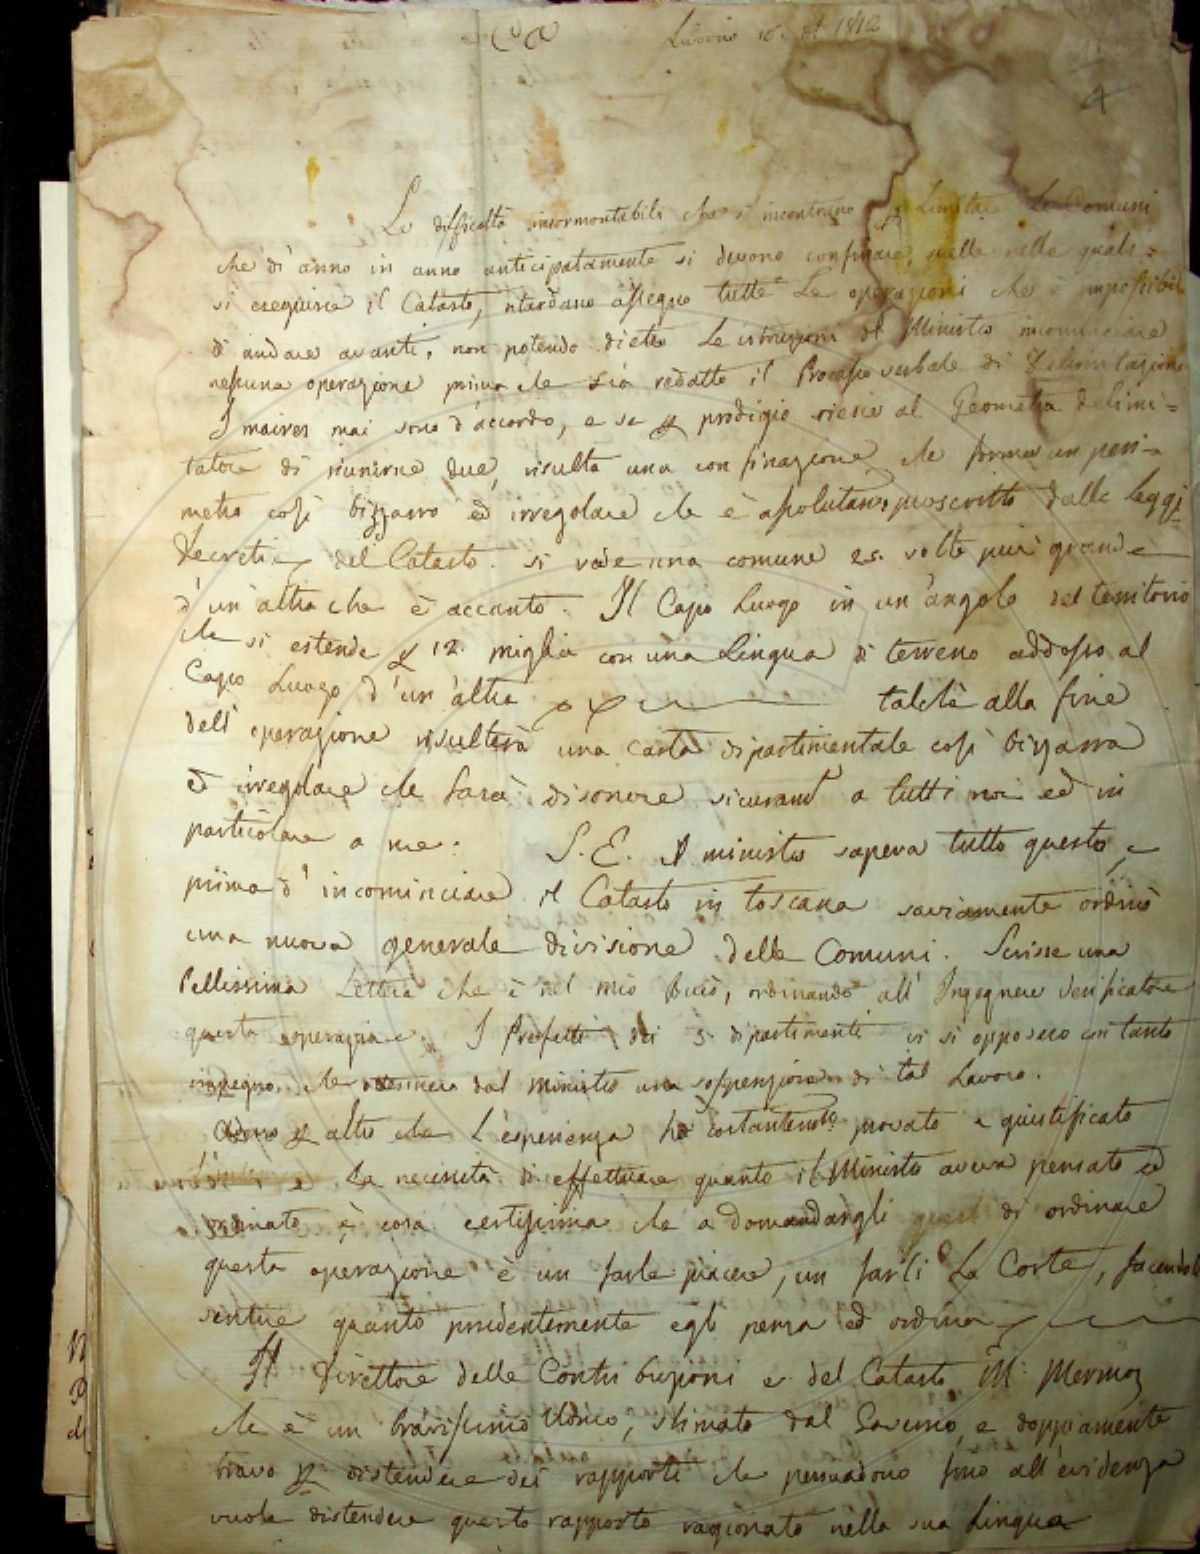 Livorno 16 1812
4
Le difficoltà insormontabili che s'incontrano p Limitar le Comuni
che di anno in anno anticipatamente si devono confinare, nelle quali
si eseguisce il Catasto, ritardano assegno tutte Le operazioni che è impossibil
di andare avanti, non potendo dietro Le istruzioni del Ministro incominciare
nessuna operazione prima che sia redatto il Processo verbale di Delimitazione
I maires mai sono d'accordo, e se p prodigio riesce al Geometra delimi=
tatore di riunirne due, risulta una confinazione che forma un peri=
metro così bizzarro ed irregolare che è assolutam proscritto dalle Leggi
Decreti del Catasto. si vede una comune 20 volte più grande
d'un'altra che è accanto. Il Capo Luogo in un'angolo del territorio
che si estende p 12 miglia con una Lingua di terreno addosso al
Capo Luogo d'un'altra talchè alla fine
dell'operazione risulterà una carta dipartimentale così bizzarra
ed irregolare che farà disonore sicuram a tutti noi ed in
particolare a me. S. E. il ministro sapeva tutto questo, e
prima d'incominciare il Catasto in toscana saviamente ordinò
una nuova generale divisione delle Comuni. Scrisse una
Bellissima Lettera che è nel mio Burò, ordinando all'Ingegnere Verificatore
questa operazione. I Prefetti dei 3 dipartimenti vi si opposero con tanto
impegno, che ottennero dal ministro una sospenzione di tal Lavoro.
p altro che L'esperienza ha costantem provato e giustificato
La necessità di effettuare quanto il Ministro aveva pensato ed
ordinato, è cosa certissima che a Domandargli di ordinare
questa operazione è un farle piacere, un farli La Corte, facendoli
sentire quanto prudentemente egli pensa ed ordina
Il Direttore delle Contribuzioni e del Catasto M. Mermoz
che è un bravissimo Uomo, stimato dal Governo, e doppiamente
bravo p distendere dei rapporti che persuadono fino all'evidenza
vuole distendere questo rapporto ragionato nella sua Lingua